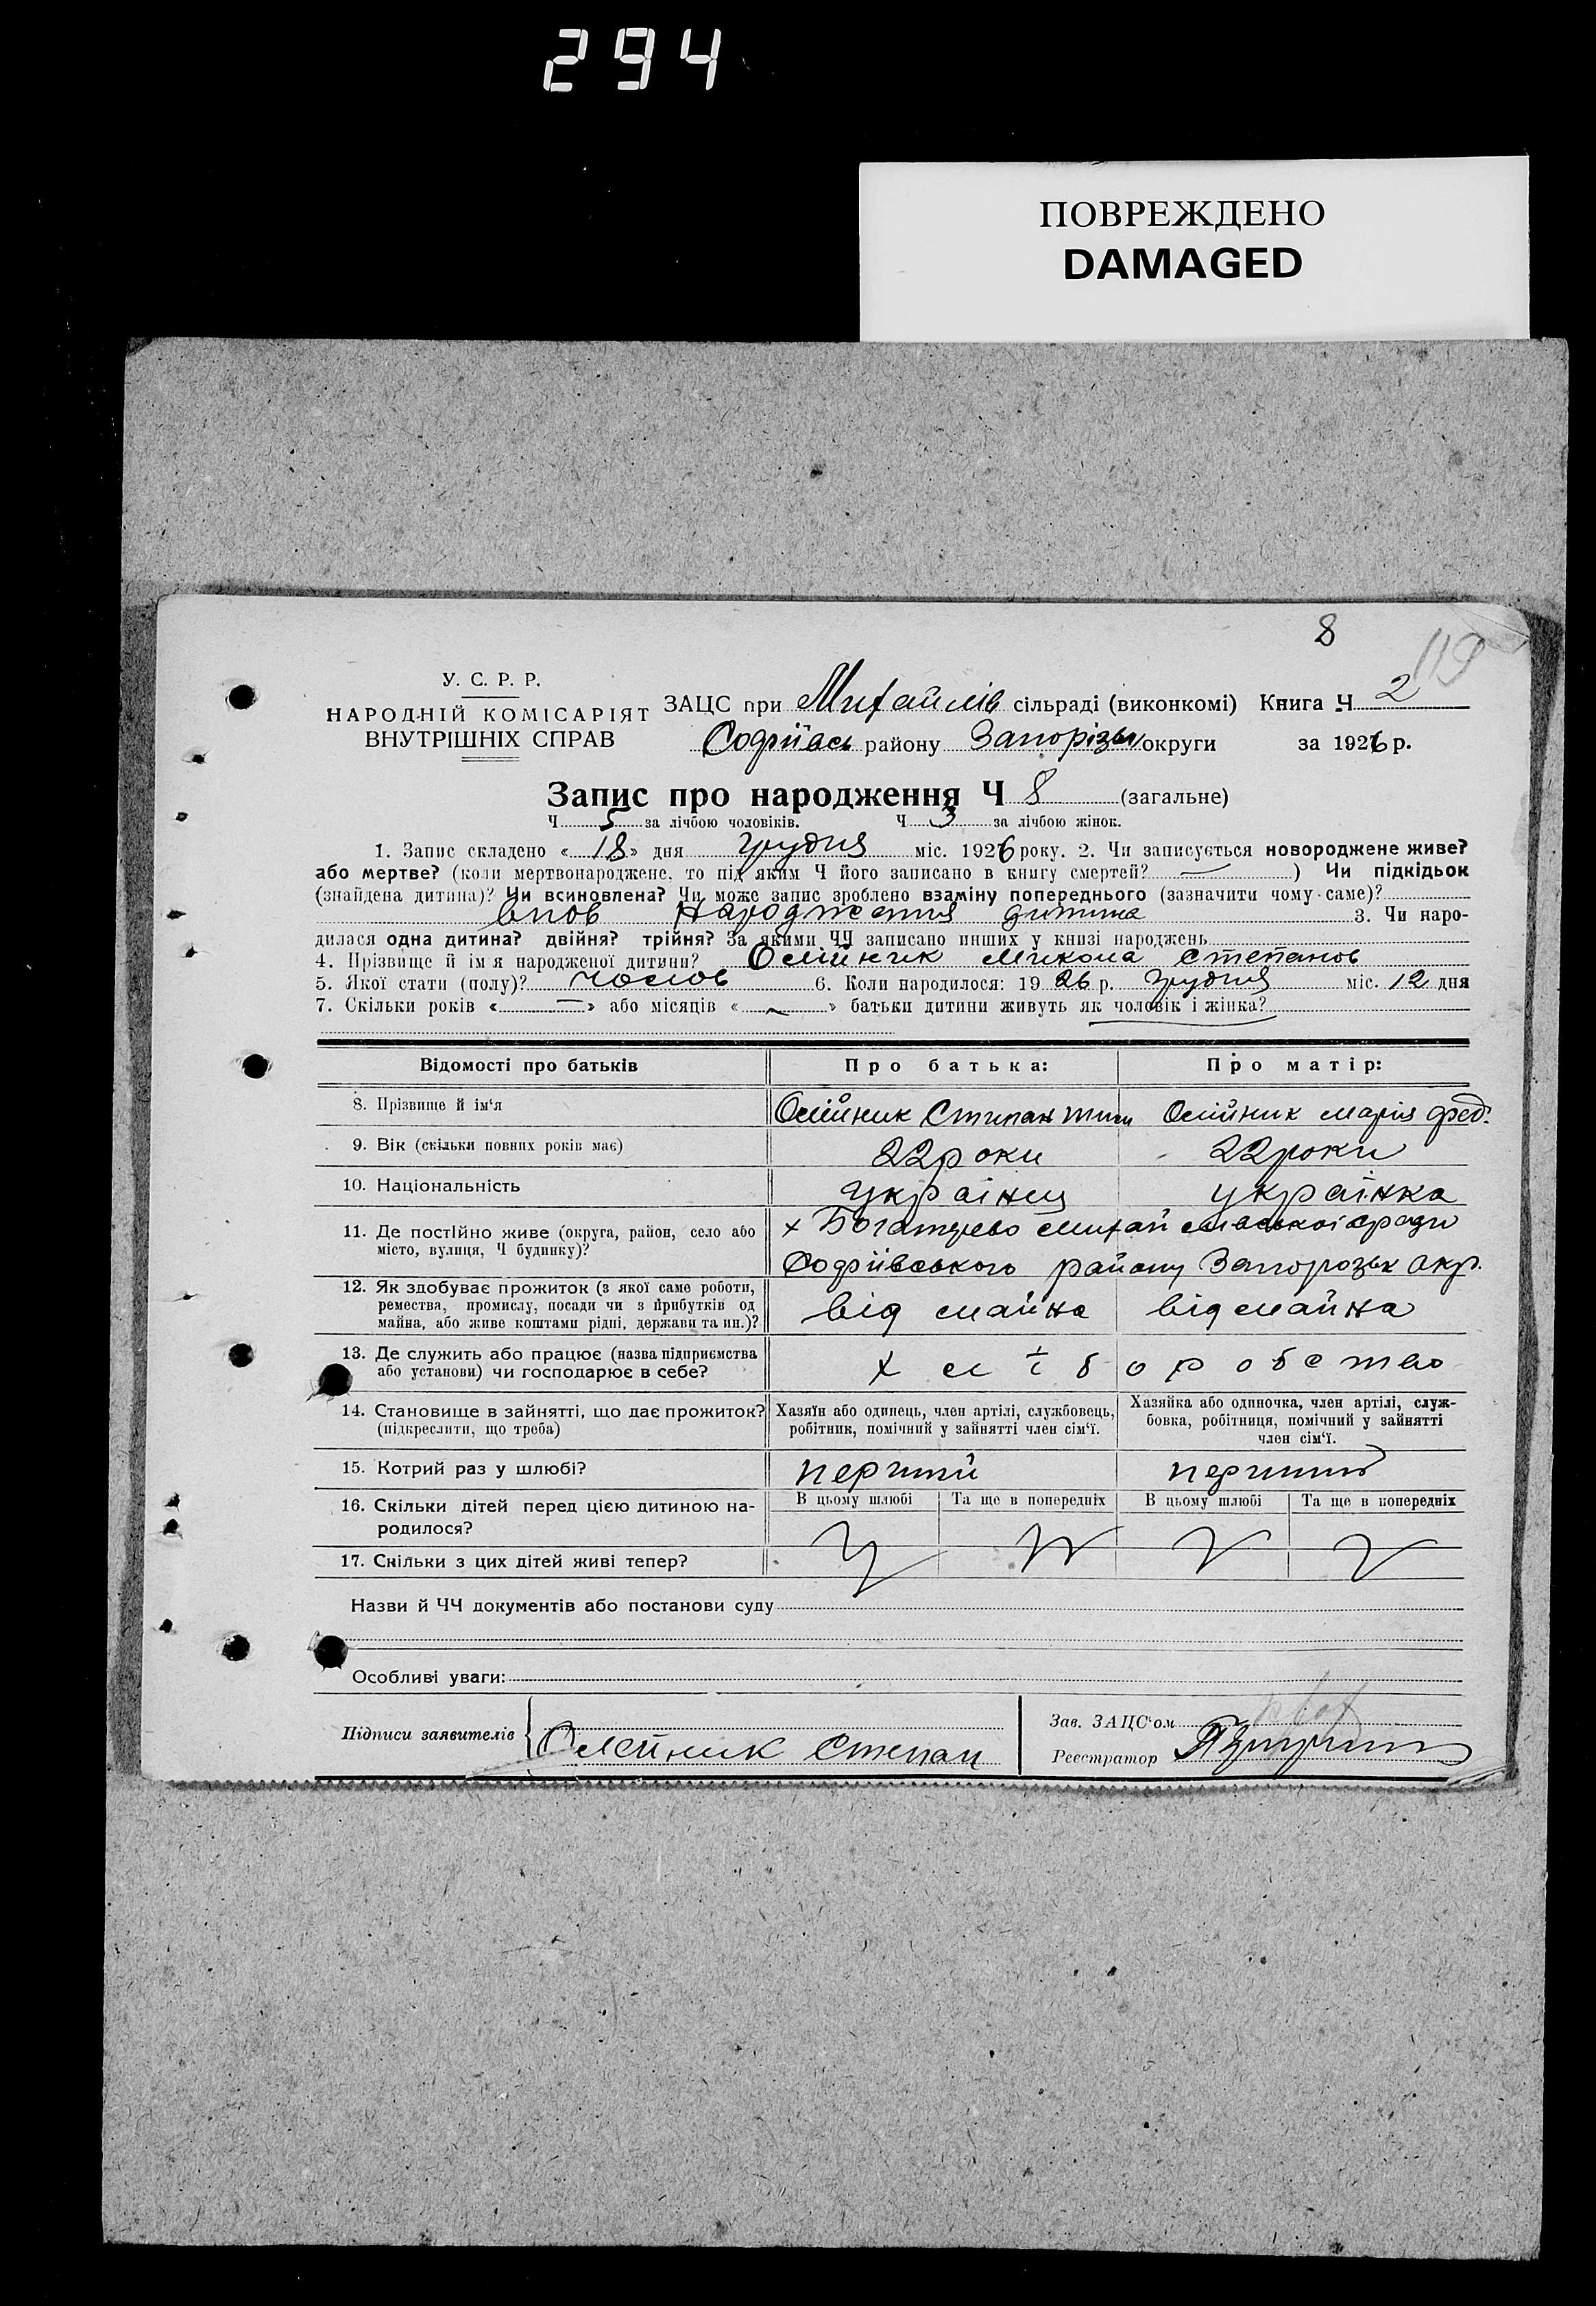 294
ПОВРЕЖДЕНО
DAMAGED
8
119
У. С. Р. Р.
НАРОДНІЙ КОМІСАРІЯТ
ВНУТРІШНІХ СПРАВ
ЗАЦС при Михайлів сільраді (виконкомі) Книга Ч 2
Софіївсь району Запорізьк округи за 1926 р.
Запис про народження Ч 8 (загальне)
Ч 5 за лічбою чоловіків. Ч 3 за лічбою жінок.
1. Запис складено « 18 » дня грудня міс. 1926 року. 2. Чи записується новороджене живе?
або мертве? (коли мертвонароджене, то під яким Ч його записано в книгу смертей? — ) Чи підкідьок
(знайдена дитина)? Чи всиновлена? Чи може запис зроблено взаміну попереднього (зазначити чому саме)?
внов народжения дитина 3. Чи наро-
дилася одна дитина? двійня? трійня? За якими ЧЧ записано инших у книзі народжень
4. Прізвище й ім я народженої дитини? Олійник Микола Степанов
5. Якої стати (полу)? чолов 6. Коли народилося: 19 26 р. грудня міс. 12 дня
7. Скільки років « — » або місяців « ~ » батьки дитини живуть як чоловік і жінка?
Відомості про батьків Про батька: Про матір:
8. Прізвище й ім‘я Олійник Степан Олійник Марія Фед.
9. Вік (скільки повних років має) 22 роки 22 роки
10. Національність українец українка
11. Де постійно живе (округа, район, село або х Богатирево Михайлівської сради
місто, вулиця, Ч будинку)? Софіївського району Запорозьк окр.
12. Як здобуває прожиток (з якої саме роботи,
ремества, промислу, посади чи з прибутків од від майна від майна
майна, або живе коштами рідні, держави та ин.)?
13. Де служить або працює (назва підприємства хліборобство
або установи) чи господарює в себе?
14. Становище в зайнятті, що дає прожиток? Хазяїн або одинець, член артілі, службовець, Хазяйка або одиночка, член артілі, служ-
(підкреслити, що треба) робітник, помічний у зайнятті член сім‘ї. бовка, робітниця, помічний у зайнятті
член сім‘ї.
15. Котрий раз у шлюбі? перший перший
16. Скільки дітей перед цією дитиною на- В цьому шлюбі Та ще в попередніх В цьому шлюбі Та ще в попередніх
родилося?
17. Скільки з цих дітей живі тепер?
Назви й ЧЧ документів або постанови суду
Особливі уваги:
Підписи заявителів Олейник Степан
Зав. ЗАЦС‘ом
Реєстратор